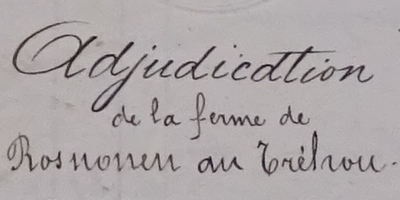 Adjudication
de la ferme de
Rosnonen au Tréhou.